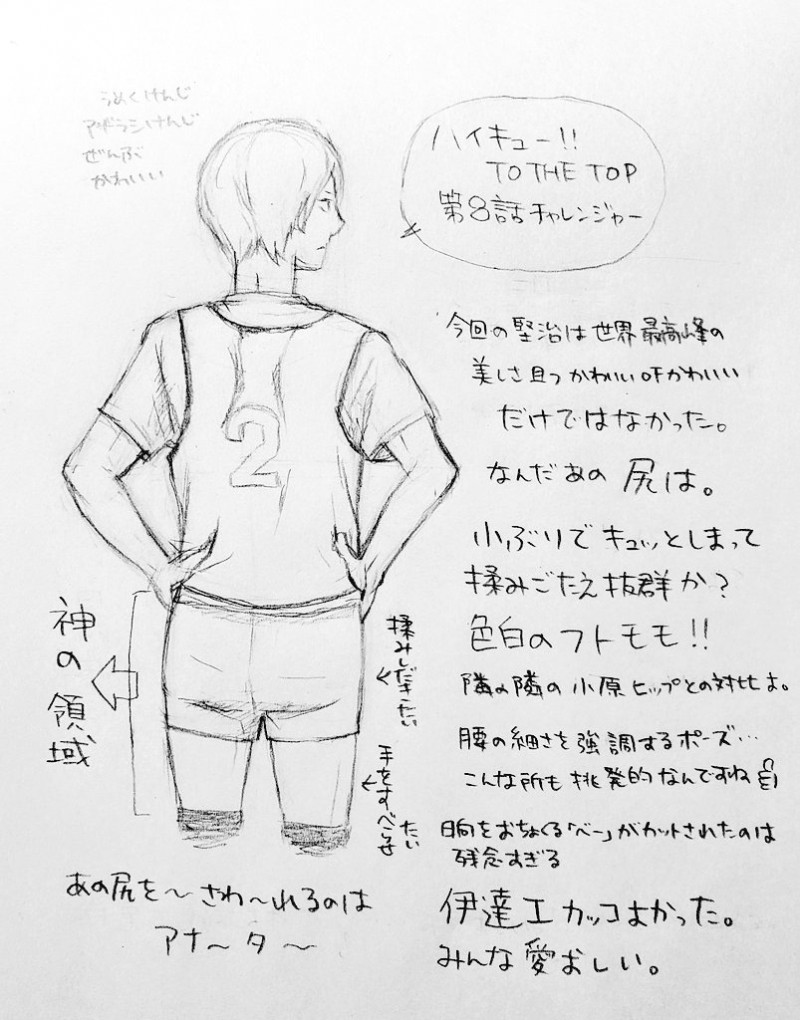 うめくけんじ
アザラシけんじ
ぜんぶ
かわいい
ハイキュー!!
TO THE TOP
第8話チャレンジャー
2
今回の堅治は世界最高峰の
美しさ且つかわいいofかわいい
だけではなかった。
なんだあの尻は。
小ぶりでキュッとしまって
揉みごたえ抜群か?
色白のフトモモ!!
隣の隣の小原ヒップとの対比よ。
腰の細さを強調するポーズ…
こんな所も挑発的なんですね
日向をおちょくる「べー」がカットされたのは
残念すぎる
伊達工カッコよかった。
みんな愛おしい。
神の領域
揉みしだきたい
手をすべらせたい
あの尻を〜さわ〜れるのは
アナ〜タ〜